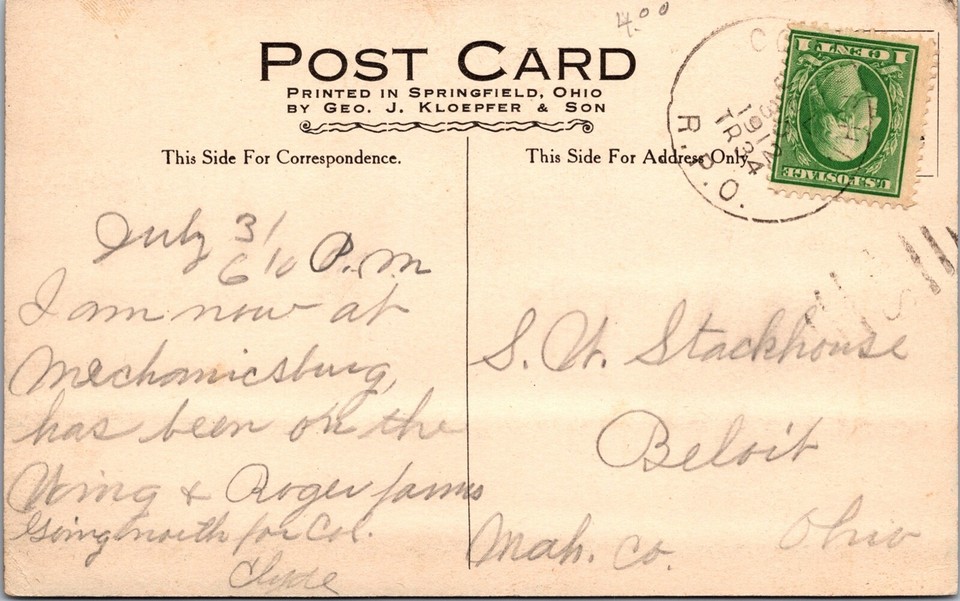 4.00
POST CARD
PRINTED IN SPRINGFIELD, OHIO
BY GEO. J. KLOEPFER & SON
This Side For Correspondence.
This Side For Address Only.
1 CENT 1
U.S. POSTAGE
1912
TR 34
R.P.O.
July 31
6 10 P.m
I am now at
Mechanicsburg,
has been on the
Wing & Roger farms
going north for Col.
Clyde
S. W. Stackhouse
Beloit
Mah. Co. Ohio